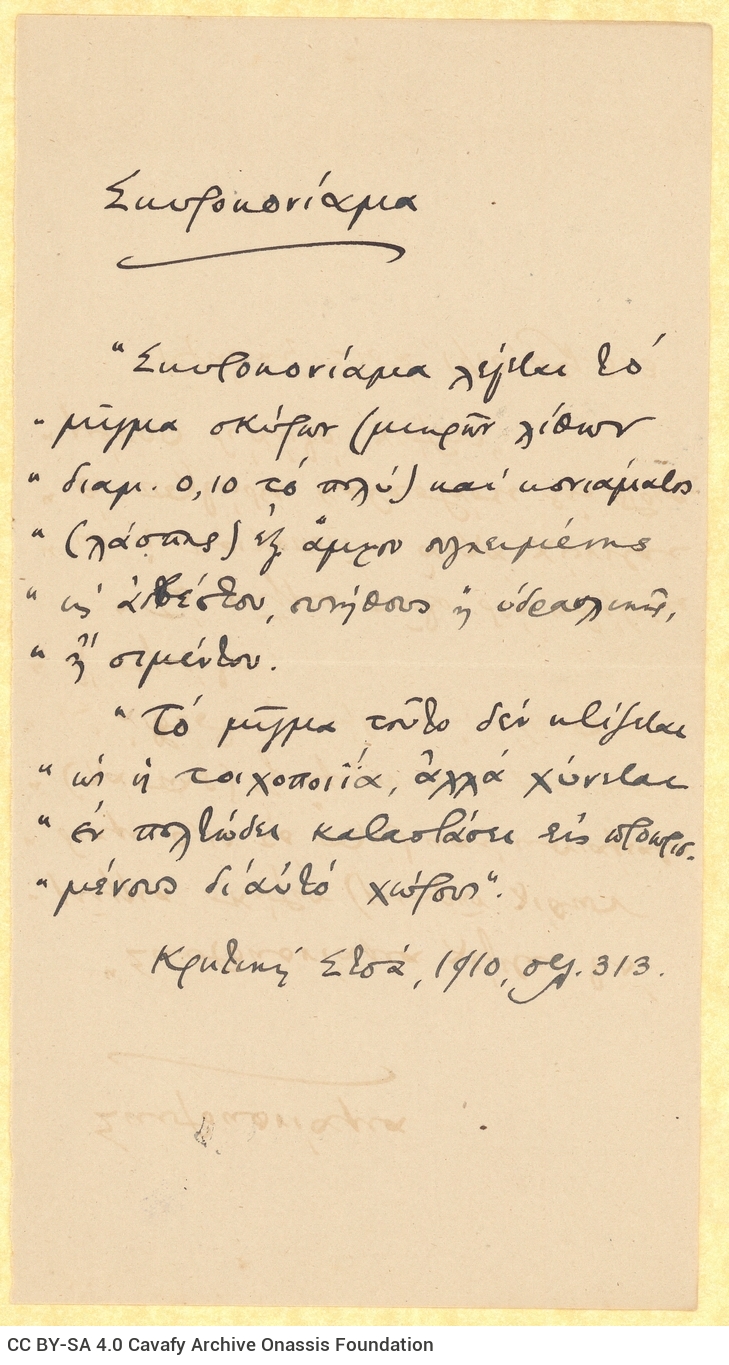 Σκυροκονίαμα
"Σκυροκονίαμα λέγεται τό
" μῖγμα σκύρων (μικρῶν λίθων
" διαμ. 0,10 τό πολύ) καί κονιάματος
" (λάσπης) ἐξ ἄμμου συγκειμένης
" κ' ἀσβέστου, συνήθους ἤ ὑδραυλικῆς,
" ἤ σιμέντου.
" Τό μῖγμα τοῦτο δέν κτίζεται
" ὡς ἡ τοιχοποιΐα, ἀλλά χύνεται
" ἐν πολτώδει καταστάσει εἰς προωρισ-
" μένους δι' αὐτό χώρους".
Κρητική Στοά, 1910, σελ. 313.
CC BY-SA 4.0 Cavafy Archive Onassis Foundation